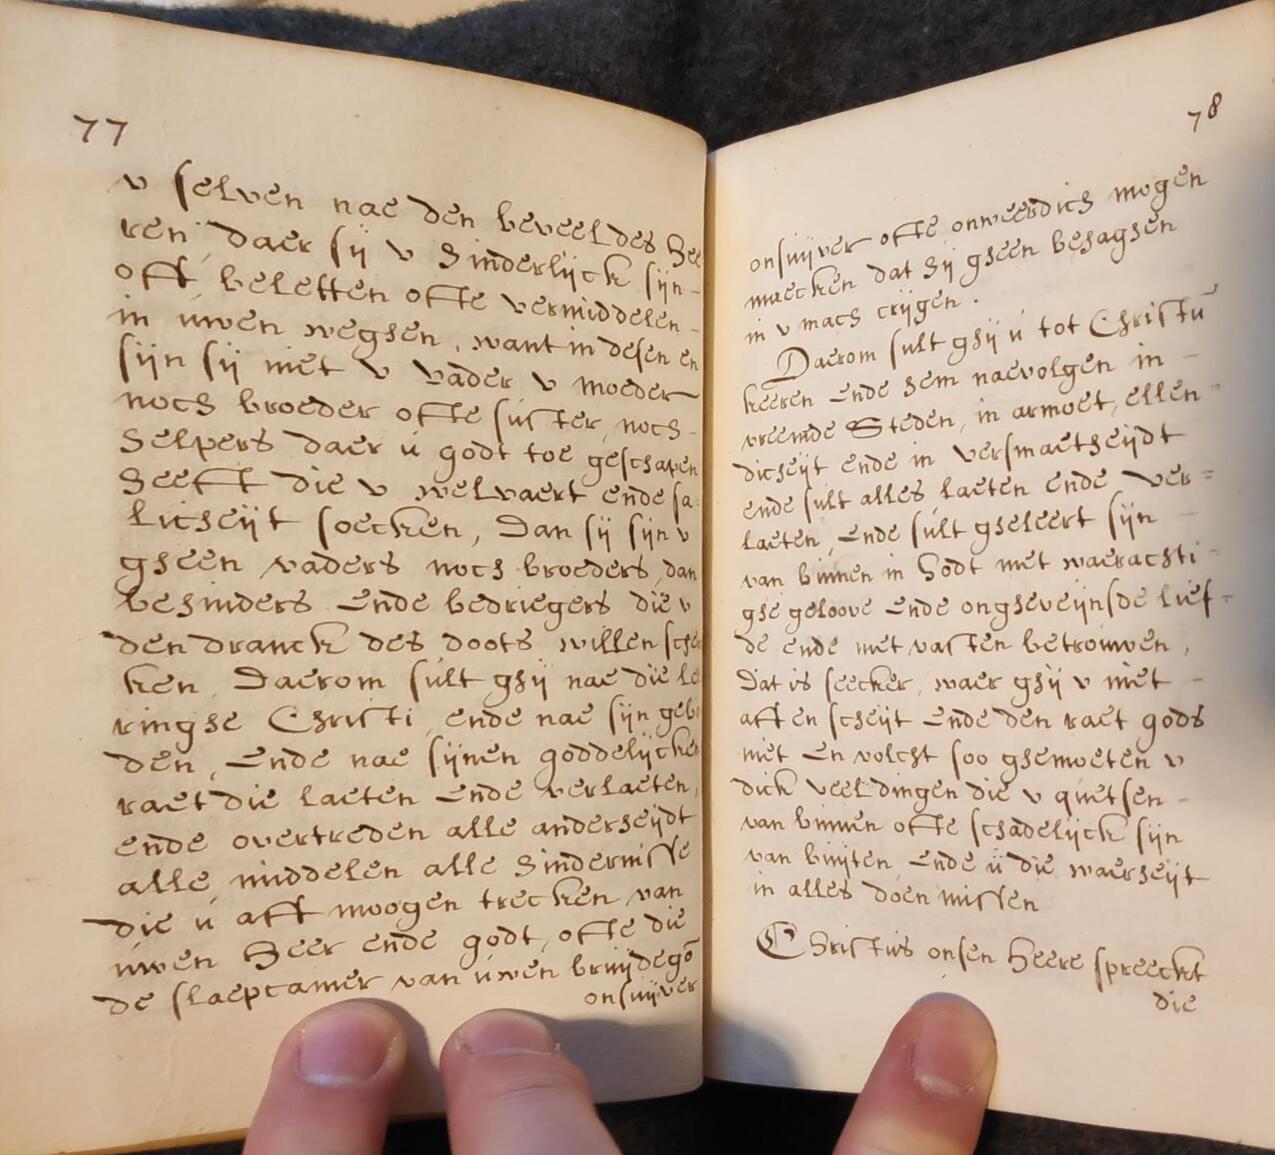 77
v selven nae den beveel des Hee
ren, daer sij v hinderlijck sijn -
oft beletten ofte vermiddelen -
in uwen weghen, want in desen en
sijn sij niet v vader v moeder
noch broeder ofte suster, noch -
helpers daer u godt toe geschapen
heeft die v welvaert ende sa-
licheijt soecken, Dan sij sijn v
gheen vaders noch broeders, dan
behinders ende bedriegers die v
den dranck des doots willen schen
ken, Daerom sult ghij nae die le
ringhe Christi, ende nae sijn gebo
den, ende nae sijnen goddelijcken
raet die laeten ende verlaeten,
ende overtreden alle anderheijdt
alle middelen alle hindernisse
die u aff moogen trecken van
uwen Heer ende godt, ofte die
de slaepcamer van uwen bruijdegō
onsuijver
78
onsuijver ofte onweerdich mogen
maecken dat hij gheen behaghen
in v mach crijgen.
Daerom sult ghij u tot Christū
keeren ende hem naevolgen in -
vreemde Steden, in armoet, ellen-
dicheijt ende in versmaetheijdt
ende sult alles laeten ende ver=
laeten, ende sult gheleert sijn -
van binnen in Godt met waerachti -
ghe geloove ende ongheveijnsde lief=
de ende met vasten betrouwen,
Dat is seecker, waer ghij v niet -
aff en scheijt ende den raet gods
niet en volcht soo ghemoeten v
dick veel dingen die v quetsen -
van binnen ofte schadelijck sijn
van buijten, ende u die waerheijt
in alles doen missen
Christus onsen Heere spreeckt
die